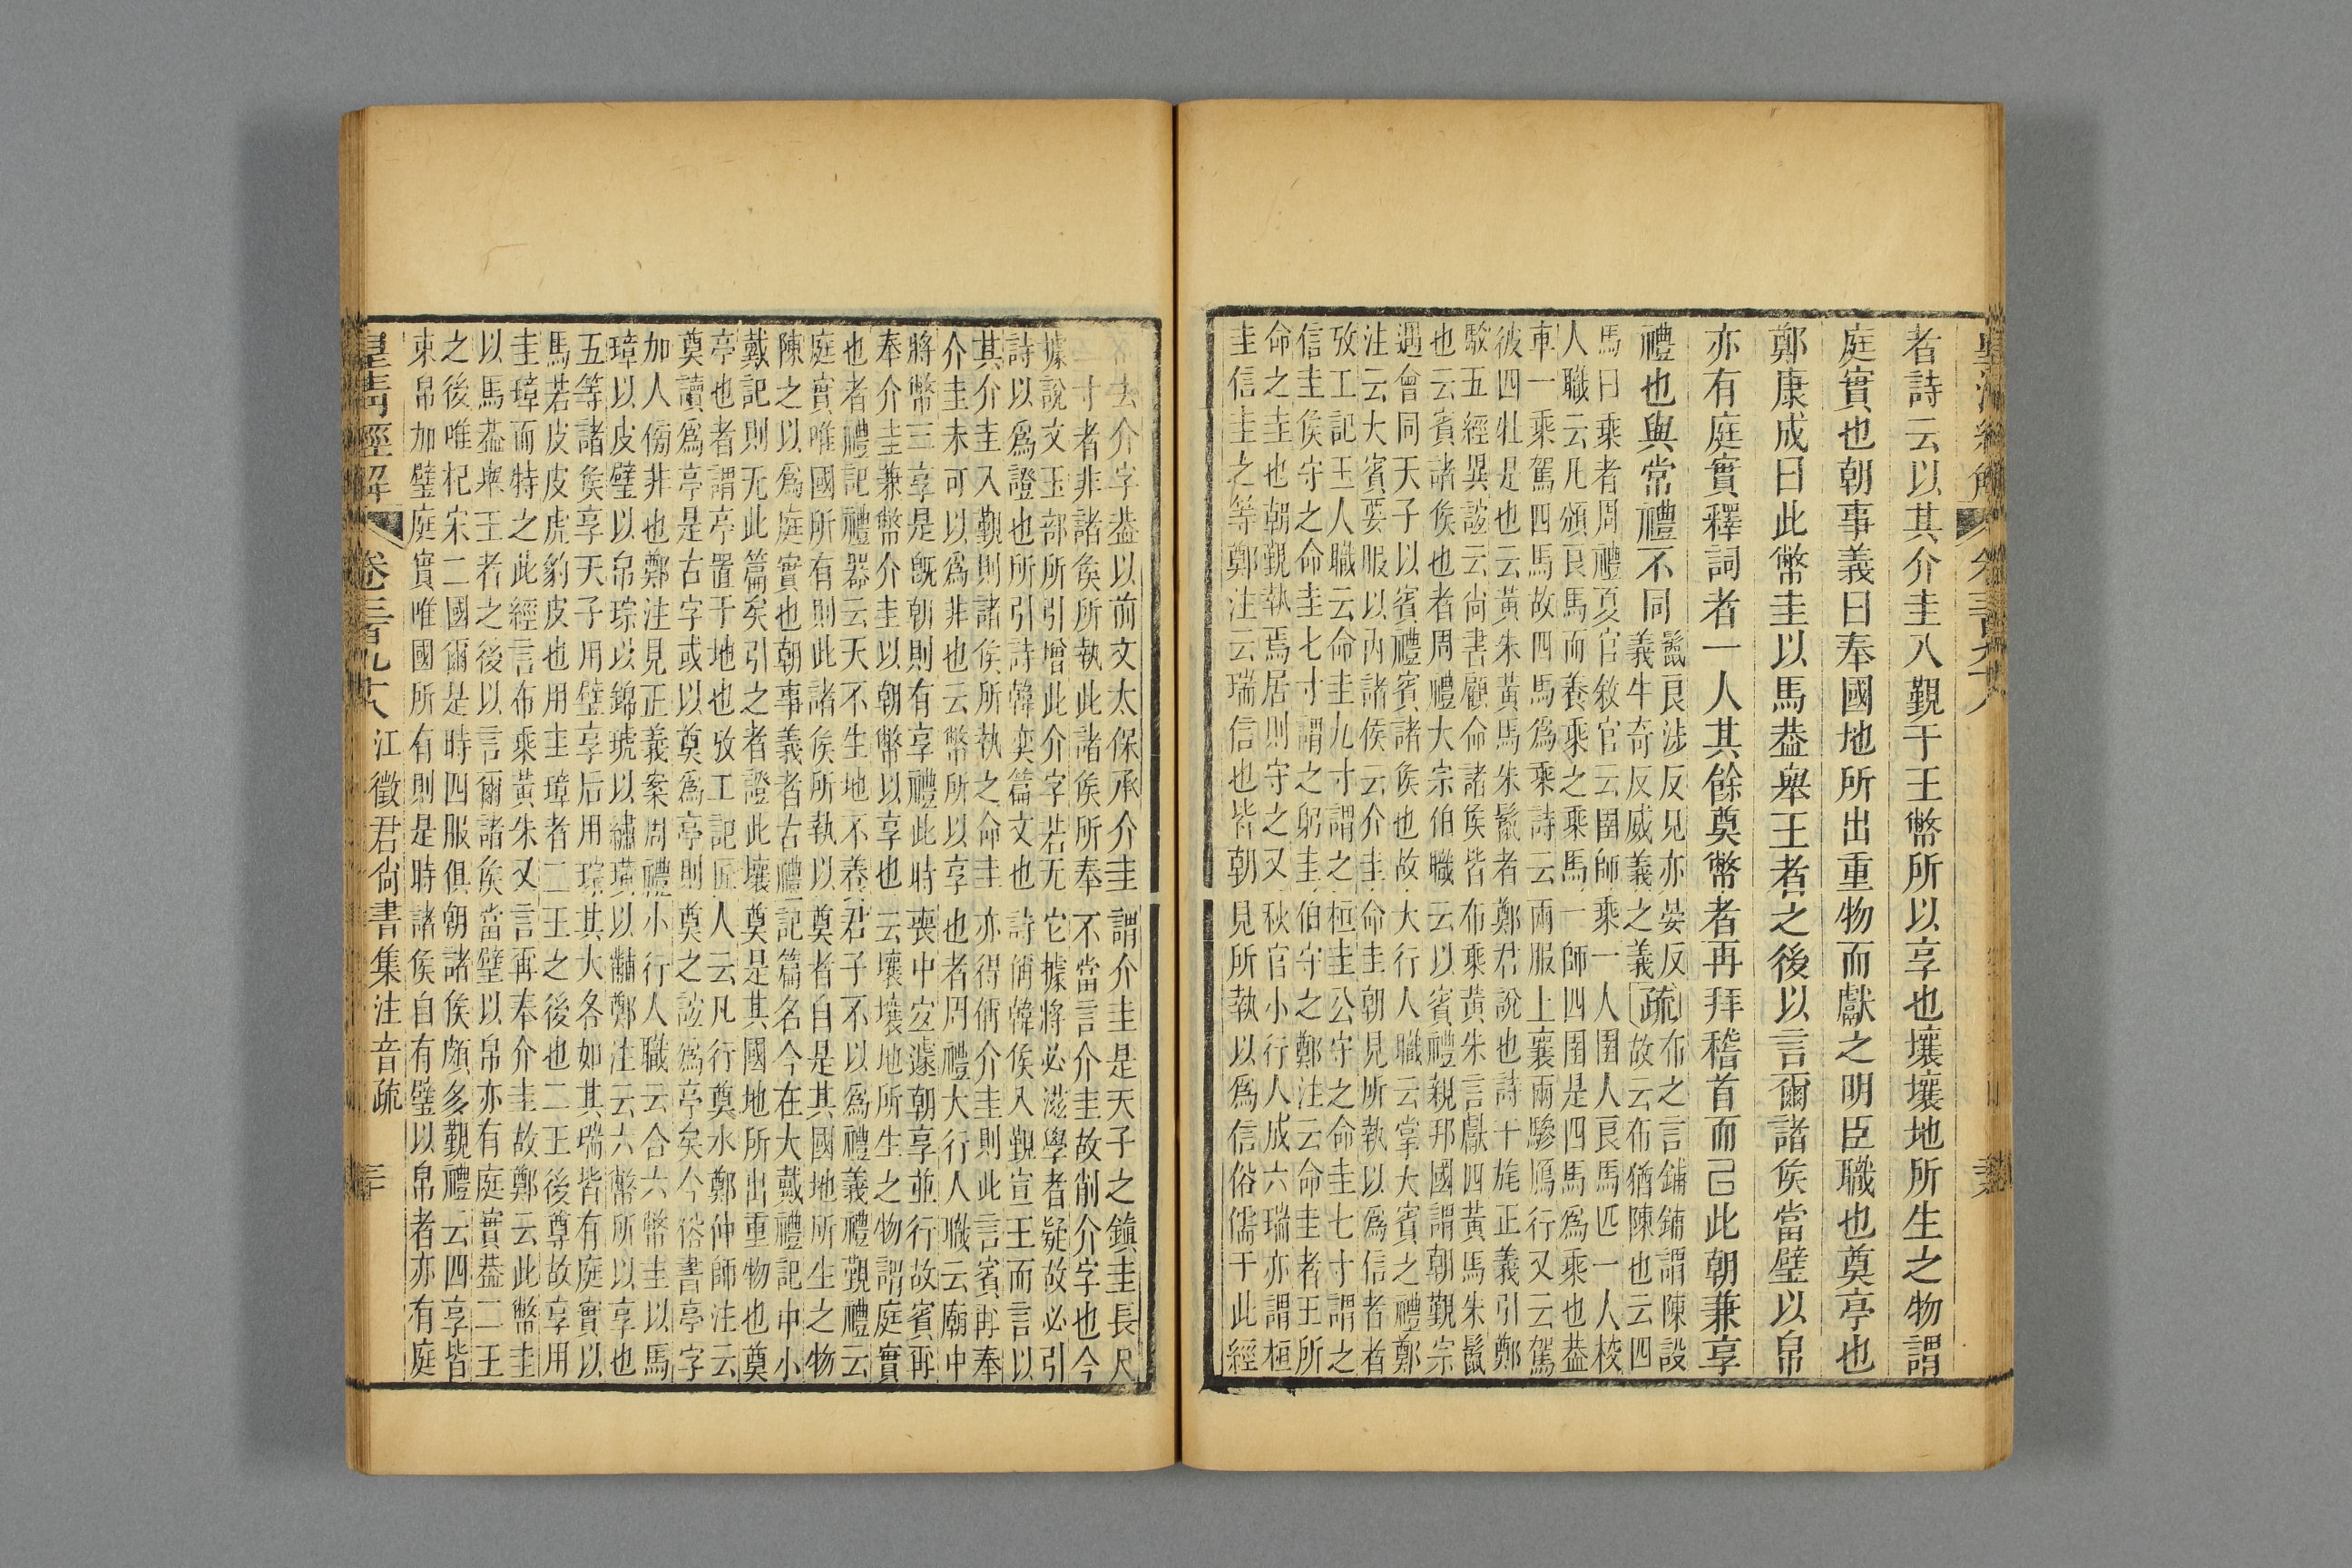 者詩云以其介圭入覲于王幣所以享也壤壤地所生之物謂
庭實也朝事義曰奉國地所出重物而獻之明臣職也奠亭也
鄭康成曰此幣圭以馬葢舉王者之後以言爾諸矦當璧以帛
亦有庭實釋詞者一人其餘奠幣者再拜稽首而已此朝兼享
禮也與常禮不同
鬣良涉反見亦晏反
義牛奇反威義之義
疏
布之言鋪鋪謂陳設
故云布猶陳也云四
馬曰乘者周禮夏官敘官云圉師乘一人圉人良馬匹一人校
人職云凡頒良馬而養乘之乘馬一師四圉是四馬爲乘也葢
車一乘駕四馬故四馬爲乘詩云兩服上襄兩驂鴈行又云駕
彼四牡是也云黃朱黃馬朱鬣者鄭君說也詩干旄正義引鄭
駮五經異誼云尙書顧命諸矦皆布乘黃朱言獻四黃馬朱鬣
也云賓諸矦也者周禮大宗伯職云以賓禮親邦國謂朝覲宗
遇會同天子以賓禮賓諸矦也故大行人職云掌大賓之禮鄭
注云大賓要服以內諸侯云介圭命圭朝見所執以爲信者者
攷工記玉人職云命圭九寸謂之桓圭公守之命圭七寸謂之
信圭矦守之命圭七寸謂之躬圭伯守之鄭注云命圭者王所
命之圭也朝覲執焉居則守之又秋官小行人成六瑞亦謂桓
圭信圭之等鄭注云瑞信也皆朝見所執以爲信俗儒于此經
去介字葢以前文太保承介圭謂介圭是天子之鎭圭長尺
寸者非諸矦所執此諸矦所奉不當言介圭故削介字也今
據說文玉部所引增此介字若无它據將必滋學者疑故必引
詩以爲證也所引詩韓奕篇文也詩偁韓矦入覲宣王而言以
其介圭入覲則諸矦所執之命圭亦得偁介圭則此言賓再奉
介圭未可以爲非也云幣所以享也者周禮大行人職云廟中
將幣三享是旣朝則有享禮此時喪中宐遽朝享並行故賓再
奉介圭兼幣介圭以朝幣以享也云壤壤地所生之物謂庭實
也者禮記禮器云天不生地不養君子不以爲禮義禮覲禮云
庭實唯國所有則此諸矦所執以奠者自是其國地所生之物
陳之以爲庭實也朝事義者古禮記篇名今在大戴禮記中小
戴記則无此篇矣引之者證此壤奠是其國地所出重物也奠
亭也者謂亭置于地也攷工記匠人云凡行奠水鄭仲師注云
奠讀爲亭是古字或以奠爲亭則奠之誼爲亭矣今俗書亭字
加人傍非也鄭注見正義案周禮小行人職云合六幣圭以馬
璋以皮璧以帛琮以錦琥以繡璜以黼鄭注云六幣所以享也
五等諸矦享天子用璧享后用琮其大各如其瑞皆有庭實以
馬若皮皮虎豹皮也用圭璋者二王之後也二王後尊故享用
圭璋而特之此經言布乘黃朱又言再奉介圭故鄭云此幣圭
以馬葢舉王者之後以言爾諸矦當璧以帛亦有庭實葢二王
之後唯杞宋二國爾是時四服俱朝諸矦頗多覲禮云四享皆
束帛加璧庭實唯國所有則是時諸矦自有璧以帛者亦有庭
皇清經解 卷三百九十八 江徵君尙書集注音疏